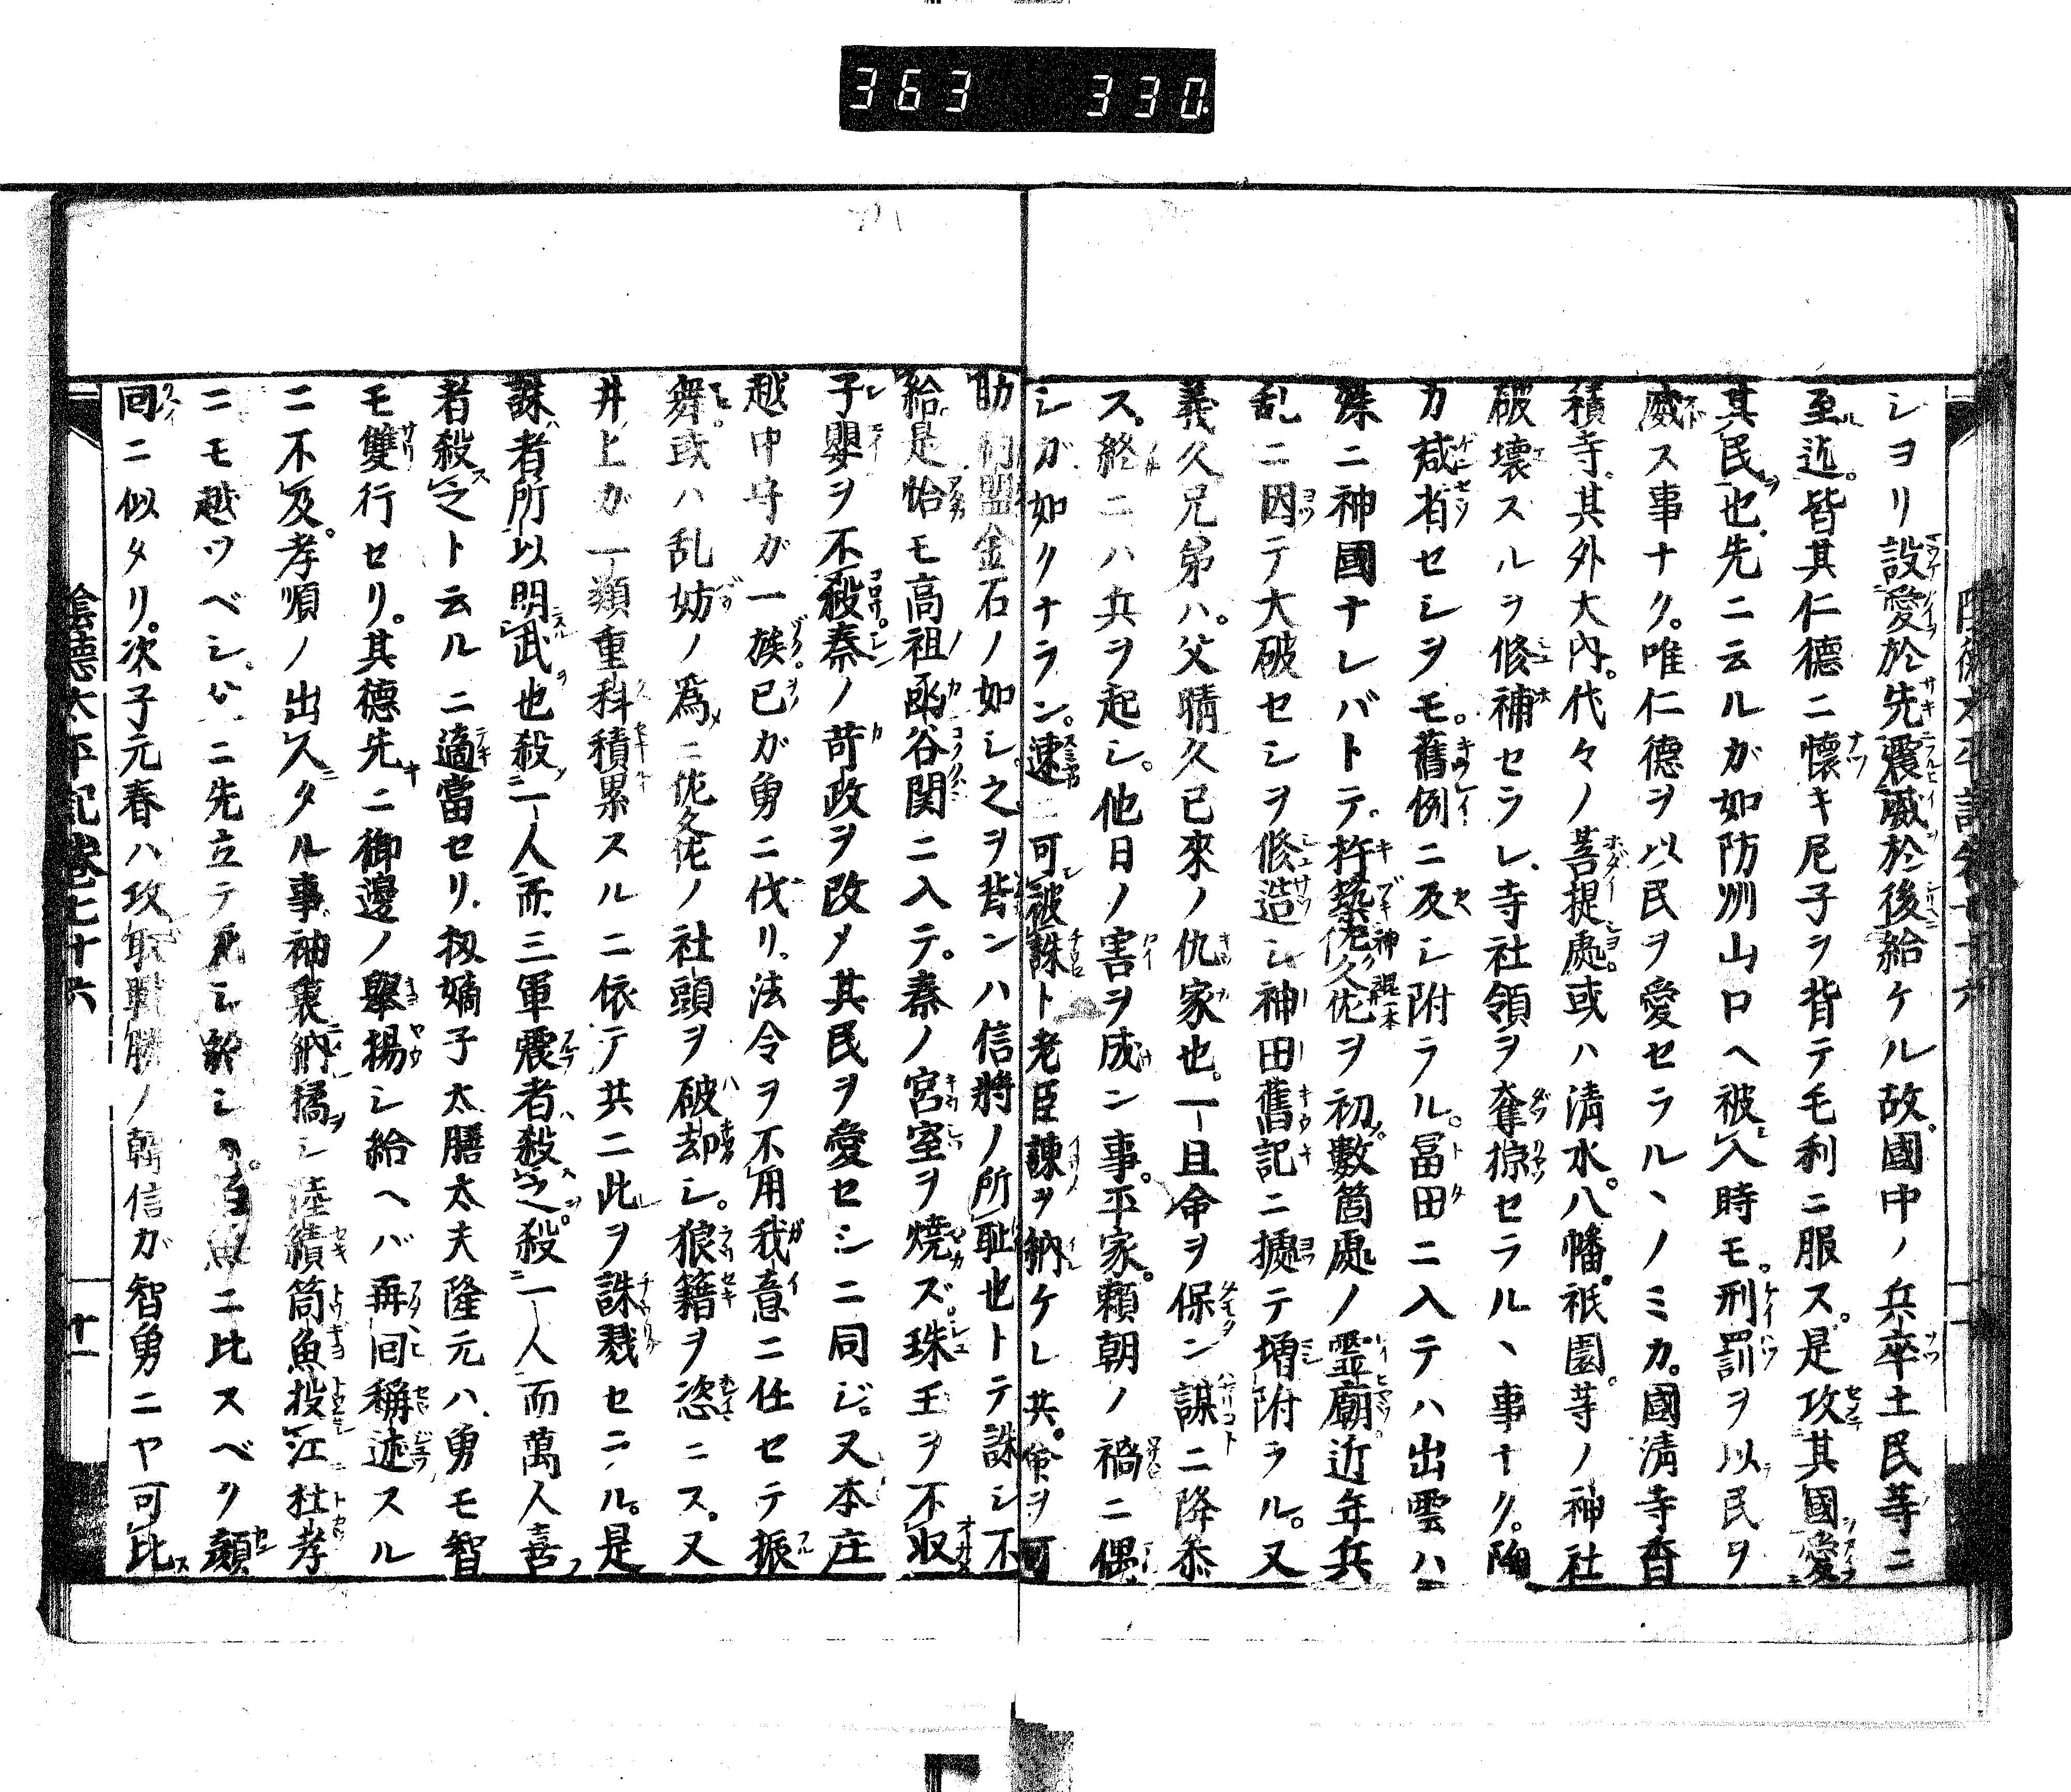 363 330
シヨリ設愛於先震威於後給ケル故國中ノ兵卒土民等ニ
至迄皆其仁德ニ懷キ尼子ヲ背テ毛利ニ服ス是攻其國愛
其民也先ニ云ルガ如防洲山口ヘ被入時モ刑罰ヲ以民ヲ
威ス事ナク唯仁德ヲ以民ヲ愛セラルヽノミカ國清寺香
積寺其外大内代々ノ菩提處或ハ清水八幡祇園等ノ神社
破壊スルヲ修補セラレ寺社領ヲ奪掠セラルヽ事ナク陶
カ減省セシヲモ舊例ニ及シ附ラル冨田ニ入テハ出雲ハ
殊ニ神國ナレバトテ杵築佐久佐ヲ初數箇處ノ霊廟近年兵
乱ニ因テ大破セシヲ修造シ神田舊記ニ據テ増附ラル又
義久兄弟ハ父晴久已來ノ仇家也一旦命ヲ保ン謀ニ降参
ス終ニハ兵ヲ起シ他日ノ害ヲ成ン事平家頼朝ノ禍ニ偶
シガ如クナラン速ニ可被誅ト老臣諫ヲ納ケレ共命ヲ可
助約盟金石ノ如シ之ヲ背ンハ信將ノ所耻也トテ誅シ不
給是恰モ高祖ノ凾谷関ニ入テ秦ノ宮室ヲ焼ズ珠玉ヲ不収
子嬰ヲ不殺秦ノ苛政ヲ改メ其民ヲ愛セシニ同ジ又本庄
越中守ガ一族已ガ勇ニ伐リ法令ヲ不用我意ニ任セテ振
舞或ハ乱妨ノ爲ニ佐久佐ノ社頭ヲ破却シ狼籍ヲ恣ニス又
井上ガ一類重科積累スルニ依テ共ニ此ヲ誅戮セラル是
誅者所以明武也殺一人而三軍震者殺之殺一人而萬人喜
者殺之ト云ルニ適當セリ扨嫡子太膳太夫隆元ハ勇モ智
モ雙行セリ其德先ニ御邊ノ舉揚シ給ヘバ再囘稱述スル
ニ不及孝順ノ出入タル事袖裏納橘シ陸績筒魚投江杜孝
ニモ越ツベシ公ニ先立テ死シ給シハ伯魚ニ比スベク顔
囘ニ似タリ次子元春ハ攻取戰勝ノ韓信ガ智勇ニヤ可比
陰德太平記卷七十六
十一